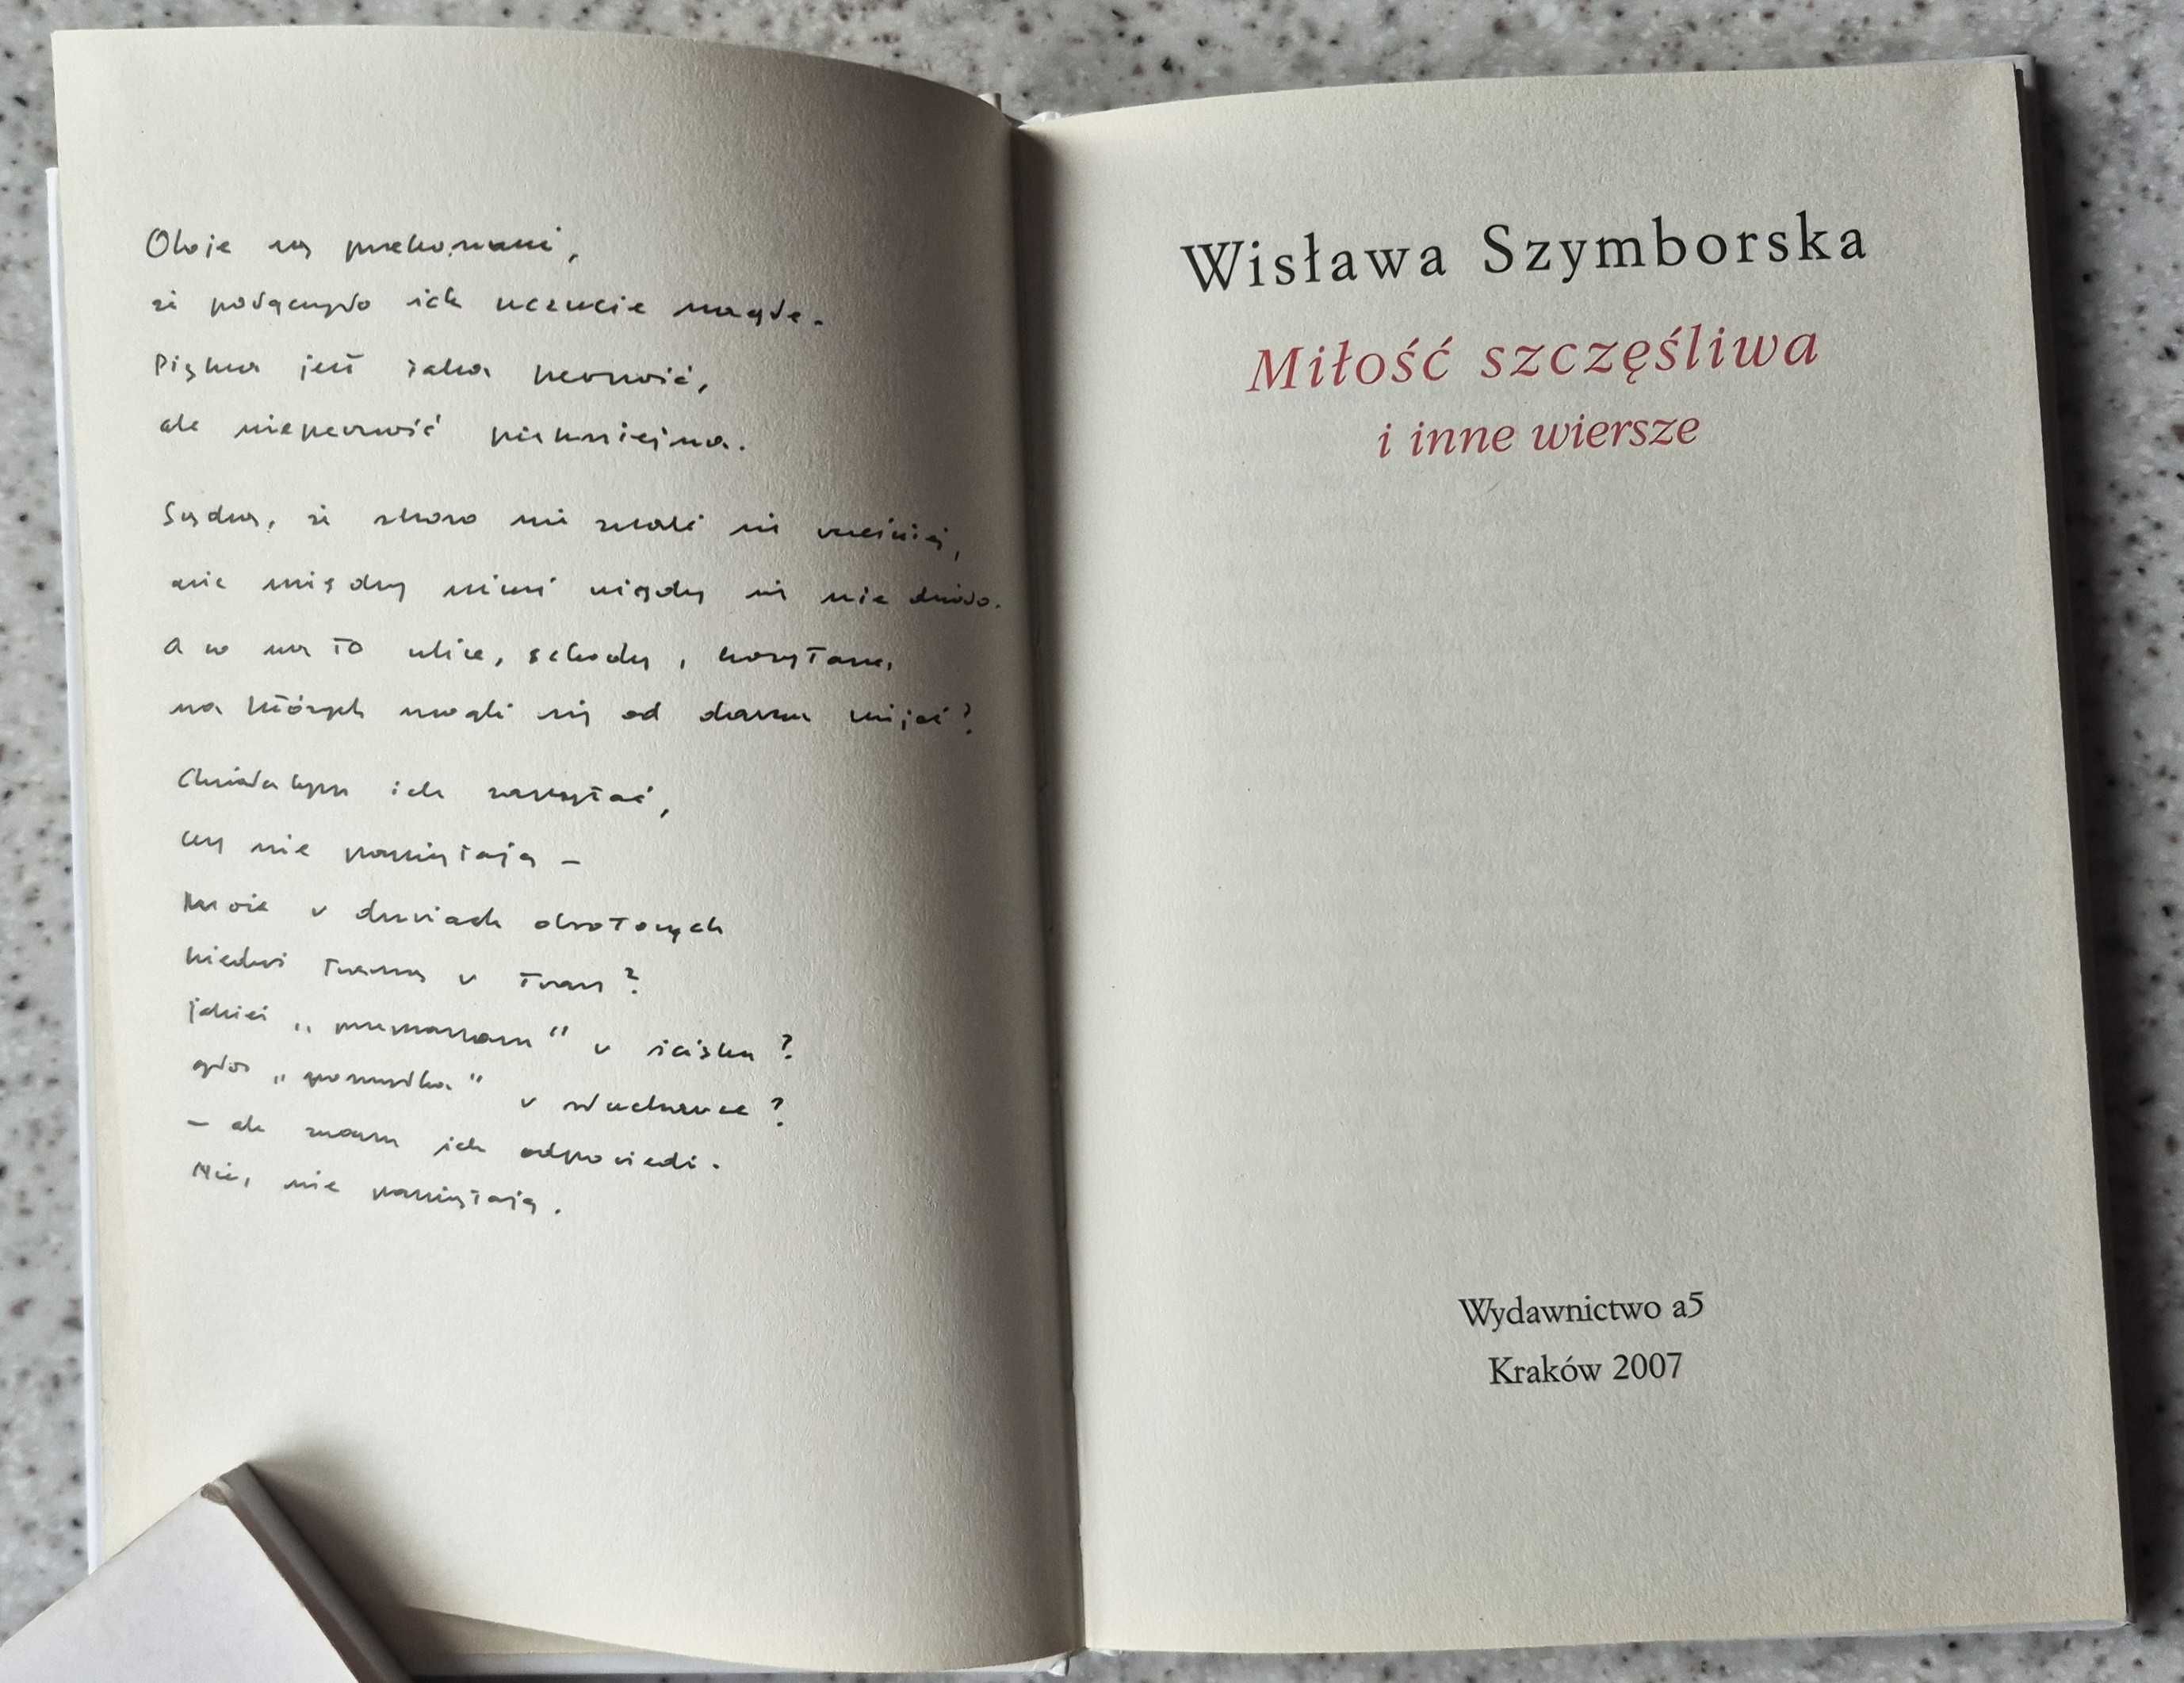 Oboje są przekonani,
że połączyło ich uczucie nagłe.
Piękna jest taka pewność,
ale niepewność piękniejsza.
Sądzą, że skoro nie znali się wcześniej,
nic między nimi nigdy się nie działo.
A co na to ulice, schody, korytarze,
na których mogli się od dawna mijać?
Chciałabym ich zapytać,
czy nie pamiętają –
może w drzwiach obrotowych
kiedyś twarzą w twarz?
jakieś „przepraszam” w ścisku?
głos „pomyłka” w słuchawce?
– ale znam ich odpowiedź.
Nie, nie pamiętają.
Wisława Szymborska
Miłość szczęśliwa
i inne wiersze
Wydawnictwo a5
Kraków 2007